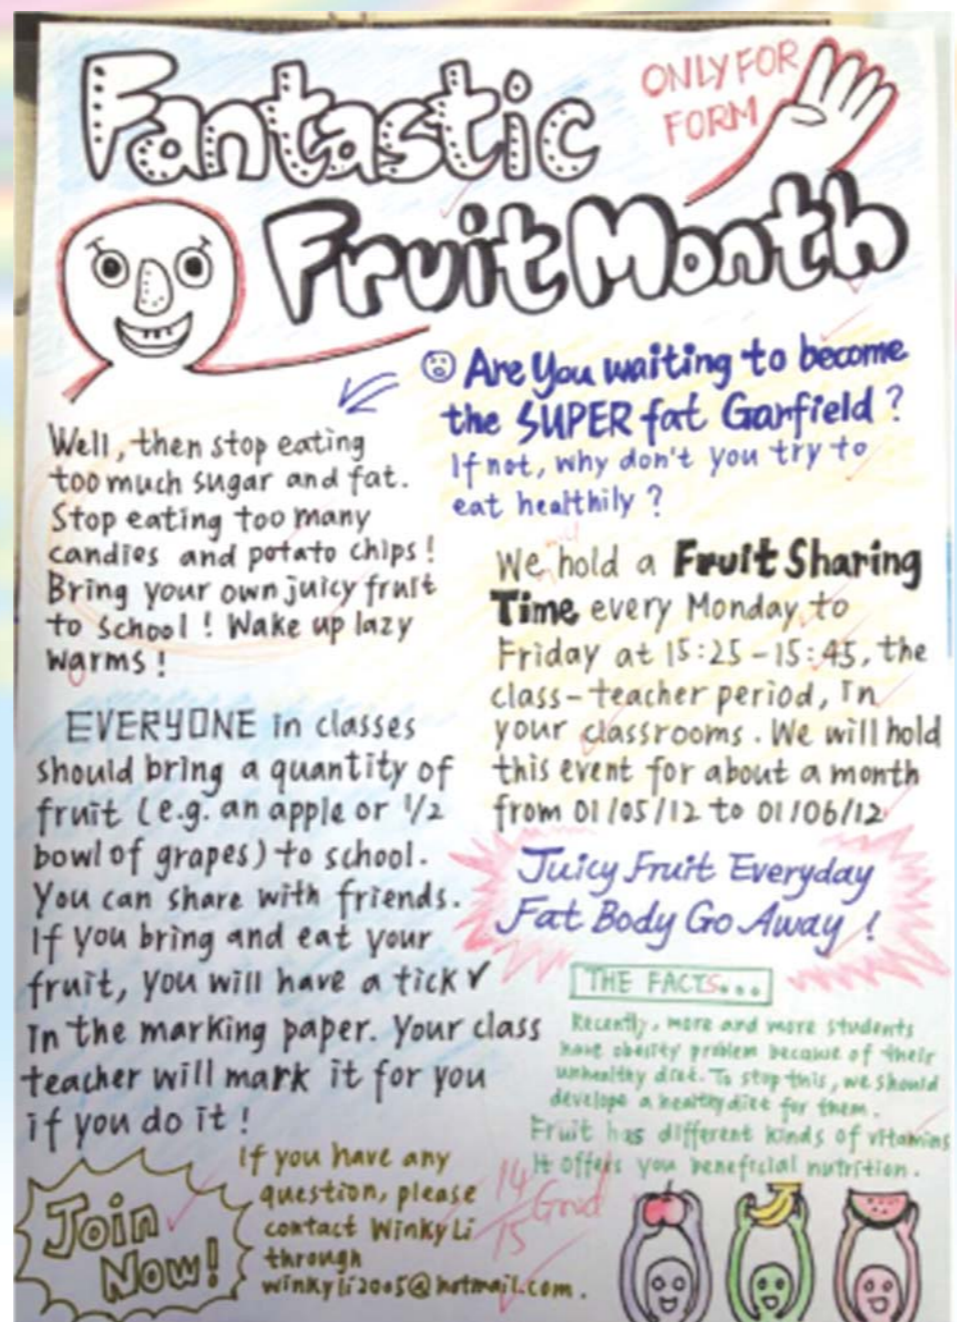 Fantastic
Fruit Month
ONLY FOR
FORM
☹ Are You waiting to become
the SUPER fat Garfield ?
If not, why don't you try to
eat healthily ?
Well, then stop eating
too much sugar and fat.
Stop eating too many
candies and potato chips !
Bring your own juicy fruit
to school ! Wake up lazy
warms !
EVERYONE in classes
should bring a quantity of
fruit (e.g. an apple or 1/2
bowl of grapes) to school.
You can share with friends.
If you bring and eat your
fruit, you will have a tick ✓
In the marking paper. Your class
teacher will mark it for you
if you do it !
We hold a Fruit Sharing
Time every Monday to
Friday at 15:25-15:45, the
class-teacher period, In
your classrooms. We will hold
this event for about a month
from 01/05/12 to 01/06/12
Juicy Fruit Everyday
Fat Body Go Away !
THE FACTS...
Recently, more and more students
have obesity problem because of their
unhealthy diet. To stop this, we should
develope a healthy diet for them.
Fruit has different kinds of vitamins
It offers you beneficial nutrition.
Join
Now!
If you have any
question, please
contact Winky Li
through
winkyli2005@hotmail.com.
14/15
Good